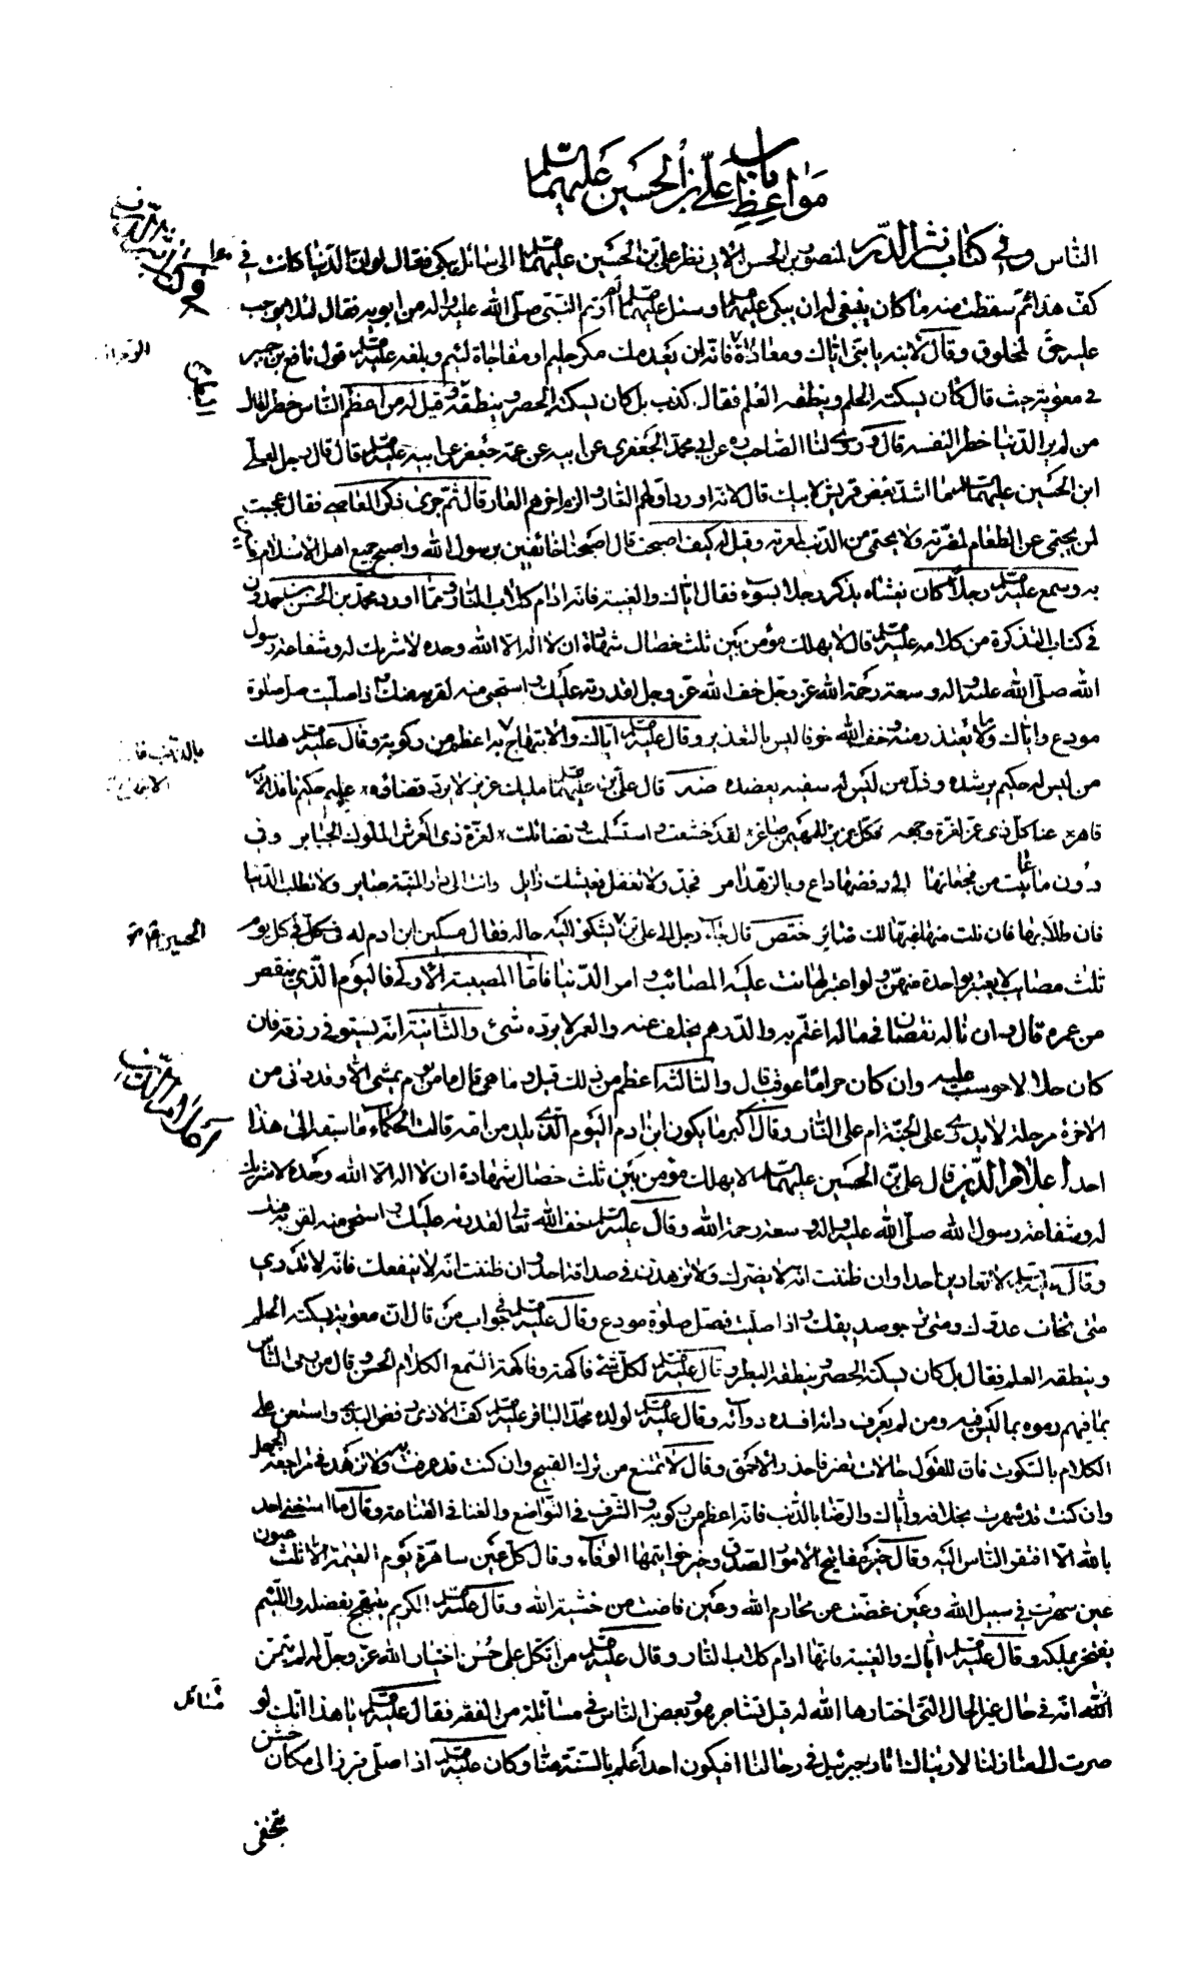 باب
مواعظ علي بن الحسين عليهما السلام
الناس وفي كتاب نثر الدرر لمنصور بن الحسن الآبي نظر علي بن الحسين عليهما السلام الى سائل يبكي فقال لو ان الدنيا كانت في
كف هذا ثم سقطت منه ما كان ينبغي له ان يبكي عليها وسئل عليه السلام لم اوتم النبي صلى الله عليه واله من ابويه فقال لئلا يوجب
عليه حق لمخلوق وقال لابنه يا بني اياك ومعاداة فانه لن يعدمك مكر حليم او مفاجاة لئيم وبلغه عليه السلام قول نافع بن جبير
في معوية حيث قال كان يسكته الحلم وينطقه العلم فقال كذب بل كان يسكته الحصر وينطقه وقيل له من اعظم الناس خطرا قال
من لم ير الدنيا خطرا لنفسه قال وروى لنا الصاحب ره عن ابي محمد الجعفري عن ابيه عن عمه جعفر عن ابيه عليه السلام قال قال رجل لعلي
ابن الحسين عليهما السلام ما اشد بغض قريش لابيك قال لانه اورد اولهم النار والزم اخرهم العار قال ثم جرى ذكر المعاصي فقال عجبت
لمن يحتمي عن الطعام لمضرته ولا يحتمي من الذنب لمعرته وقيل له كيف اصبحت قال اصبحنا خائفين برسول الله واصبح جميع اهل الاسلام امنين
به وسمع عليه السلام رجلا كان يغشاه يذكر رجلا بسوء فقال اياك والغيبة فانه ادام كلاب النار ومما اورده محمد بن الحسن بن حمدون
في كتاب التذكرة من كلامه عليه السلام قال لا يهلك مؤمن بين ثلث خصال شهادة ان لا اله الا الله وحده لا شريك له وشفاعة رسول
الله صلى الله عليه واله وسعة رحمة الله عز وجل خف الله عز وجل لقدرته عليك واستحي منه لقربه منك اذا صليت صل صلوة
مودع واياك وما يعتذر منه وخف الله خوفا ليس بالتعذير وقال عليه السلام اياك والابتهاج به اعظم من ركوبه وقال عليه السلام هلك
من ليس له حكيم يرشده وذل من ليس له سفيه يعضده ضه قال علي بن عليهما السلام مليك عزيز لا يرد قضاؤه عليم حكيم نافذ الامر
قاهر عنا كل ذي عز لعزة وجهه فكل عزيز للمهيمن صاغر لقد خشعت واستسلمت وتضائلت لعزة ذي العرش الملوك الجبابر وفي
دون ما عاينت من فجعاتها الى رفضها داع وبالزهد امر فجد ولا تغفل فعيشك زايل وانت الى دار المنية صاير ولا تطلب الدنيا
فان طلابها فان نلت منها غبها لك ضائر ختص قال جاء رجل الى علي بن يشكو اليه حاله فقال مسكين ابن ادم له في كل يوم
ثلث مصائب لا يعتبر بواحدة منهن ولو اعتبر لهانت عليه المصائب وامر الدنيا فاما المصيبة الاولى فاليوم الذي ينقص
من عمره قال وان ناله نقصان في ماله اغتم به والدرهم يخلف عنه والعمر لا يرده شئ والثانية انه يستوفي رزقه فان
كان حلالا حوسب عليه وان كان حراما عوقب قال والثالثة اعظم من ذلك قيل وما هي قال ما من يوم يمسي الا وقد دنى من
الاخرة مرحلة لا يدري على الجنة ام على النار وقال اكبر ما يكون ابن ادم اليوم الذي يلد من امه قالت الحكماء ما سبقه الى هذا
احد اعلام الدين قال علي بن الحسين عليهما السلام لا يهلك مؤمن بين ثلث خصال شهادة ان لا اله الا الله وحده لا شريك
له وشفاعة رسول الله صلى الله عليه واله وسعة رحمة الله وقال عليه السلام خف الله تعالى لقدرته عليك واستحي منه لقربه منك
وقال عليه السلام لا تعادين احدا وان ظننت انه لا يضرك ولا تزهدن في صداقة احد وان ظننت انه لا ينفعك فانه لا تدري
متى تخاف عدوك ومتى ترجو صديقك واذا صليت فصل صلوة مودع وقال عليه السلام في جواب من قال ان معوية يسكته الحلم
وينطقه العلم فقال بل كان يسكته الحصر وينطقه البطر وقال عليه السلام لكل شئ فاكهة وفاكهة السمع الكلام الحسن وقال من رمى الناس
بما فيهم رموه بما ليس فيه ومن لم يعرف داءه افسده دوآئه وقال عليه السلام لولده محمد الباقر عليه السلام كف الاذى رفض البذى واستعن على
الكلام بالسكوت فان للقول حالات تضر فاحذر الاحمق وقال لا تمتنع من ترك القبيح وان كنت قد عرفت به ولا تزهد في مراجعة الجهل
وان كنت قد شهرت بخلافه واياك والرضا بالذنب فانه اعظم من ركوبه والشرف في التواضع والغنا في القناعة وقال ما استغنى احد
بالله الا افتقر الناس اليه وقال خير مفاتيح الامور الصدق وخير خواتيمها الوفاء وقال كل عين ساهرة يوم القيمة الا ثلث عيون
عين سهرت في سبيل الله وعين غضت عن محارم الله وعين فاضت من خشية الله وقال عليه السلام الكريم يبتهج بفضله واللئيم
يفتخر بملكه وقال عليه السلام اياك والغيبة فانها ادام كلاب النار وقال عليه السلام من اتكل على حسن اختيار الله عز وجل له لم يتمن
انه في حال غير الحال التي اختارها الله له قيل تشاجر هو وبعض الناس في مسائلة من الفقه فقال عليه السلام يا هذا انك لو
صرت الى منازلنا لاريناك اثار جبرئيل في رحالنا افيكون احد اعلم بالسنة منا وكان عليه السلام اذا صلى برز الى مكان خشن
يتخفى
اعلام الدين